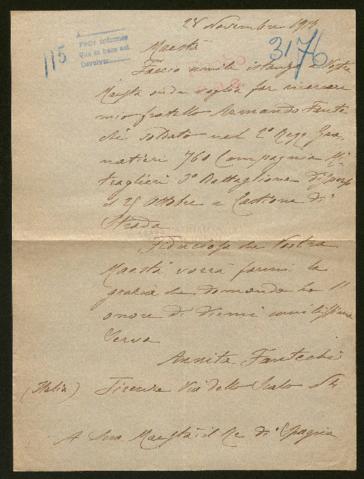 28 Novembre 191
Pase informes
115
3176
Maestà
Faccio umile istanza a Vostra
Maestà onde voglia far ricercare
mio fratello Armando Fantechi
soldato nel 2° Regg Gra
natieri 760 Compagnia Mi
traglieri 3° Battaglione
il 25 Ottobre a Castione di
Strada
Fiduciosa che Vostra
Maestà vorrà farmi la
grazia che domando ho l'
onore di dirmi umilissima
Serva
Annita Fantechi
(Italia) Firenze Via dello Scala 54
A Sua Maestà il Re di Spagna